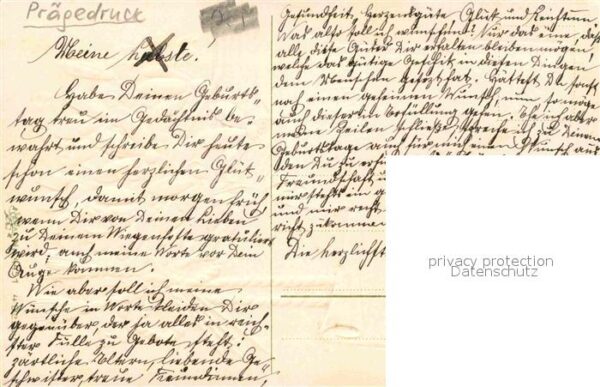 Prägedruck
Meine Liebste!
Habe Deinen Geburts-
tag treu im Gedächtnis be-
wahrt und schreibe Dir heute
schon einen herzlichen Glück-
wunsch, damit morgen früh
wenn Dir von Deinen Lieben
zu Deinem Wiegenfeste gratuliert
wird, auch meine Worte vor Dein
Auge kommen.
Wie aber soll ich meine
Wünsche in Worte kleiden Dir
gegenüber, der ja alles in reich-
ster Fülle zu Gebote steht:
zärtliche Eltern, liebende Ge-
schwister, treue Freundinnen,
Gesundheit, Herzensgüte Glück und Reichtum.
Was also soll ich wünschen? Nur das eine, dass
alle diese Güter Dir erhalten bleiben mögen,
welche das gütige Geschick in diesen Dingen
den Menschen gesetzt hat. Hättest Du sonst
noch einen geheimen Wunsch, nun so möge
auch dieser in Erfüllung gehen. Ehe ich aber
meine Zeilen schließe, spreche ich zu Deinem
Geburtstage auch für mich einen Wunsch aus
den Du zu
Freundschaft
und nur recht
Die herzlichst
privacy protection
Datenschutz